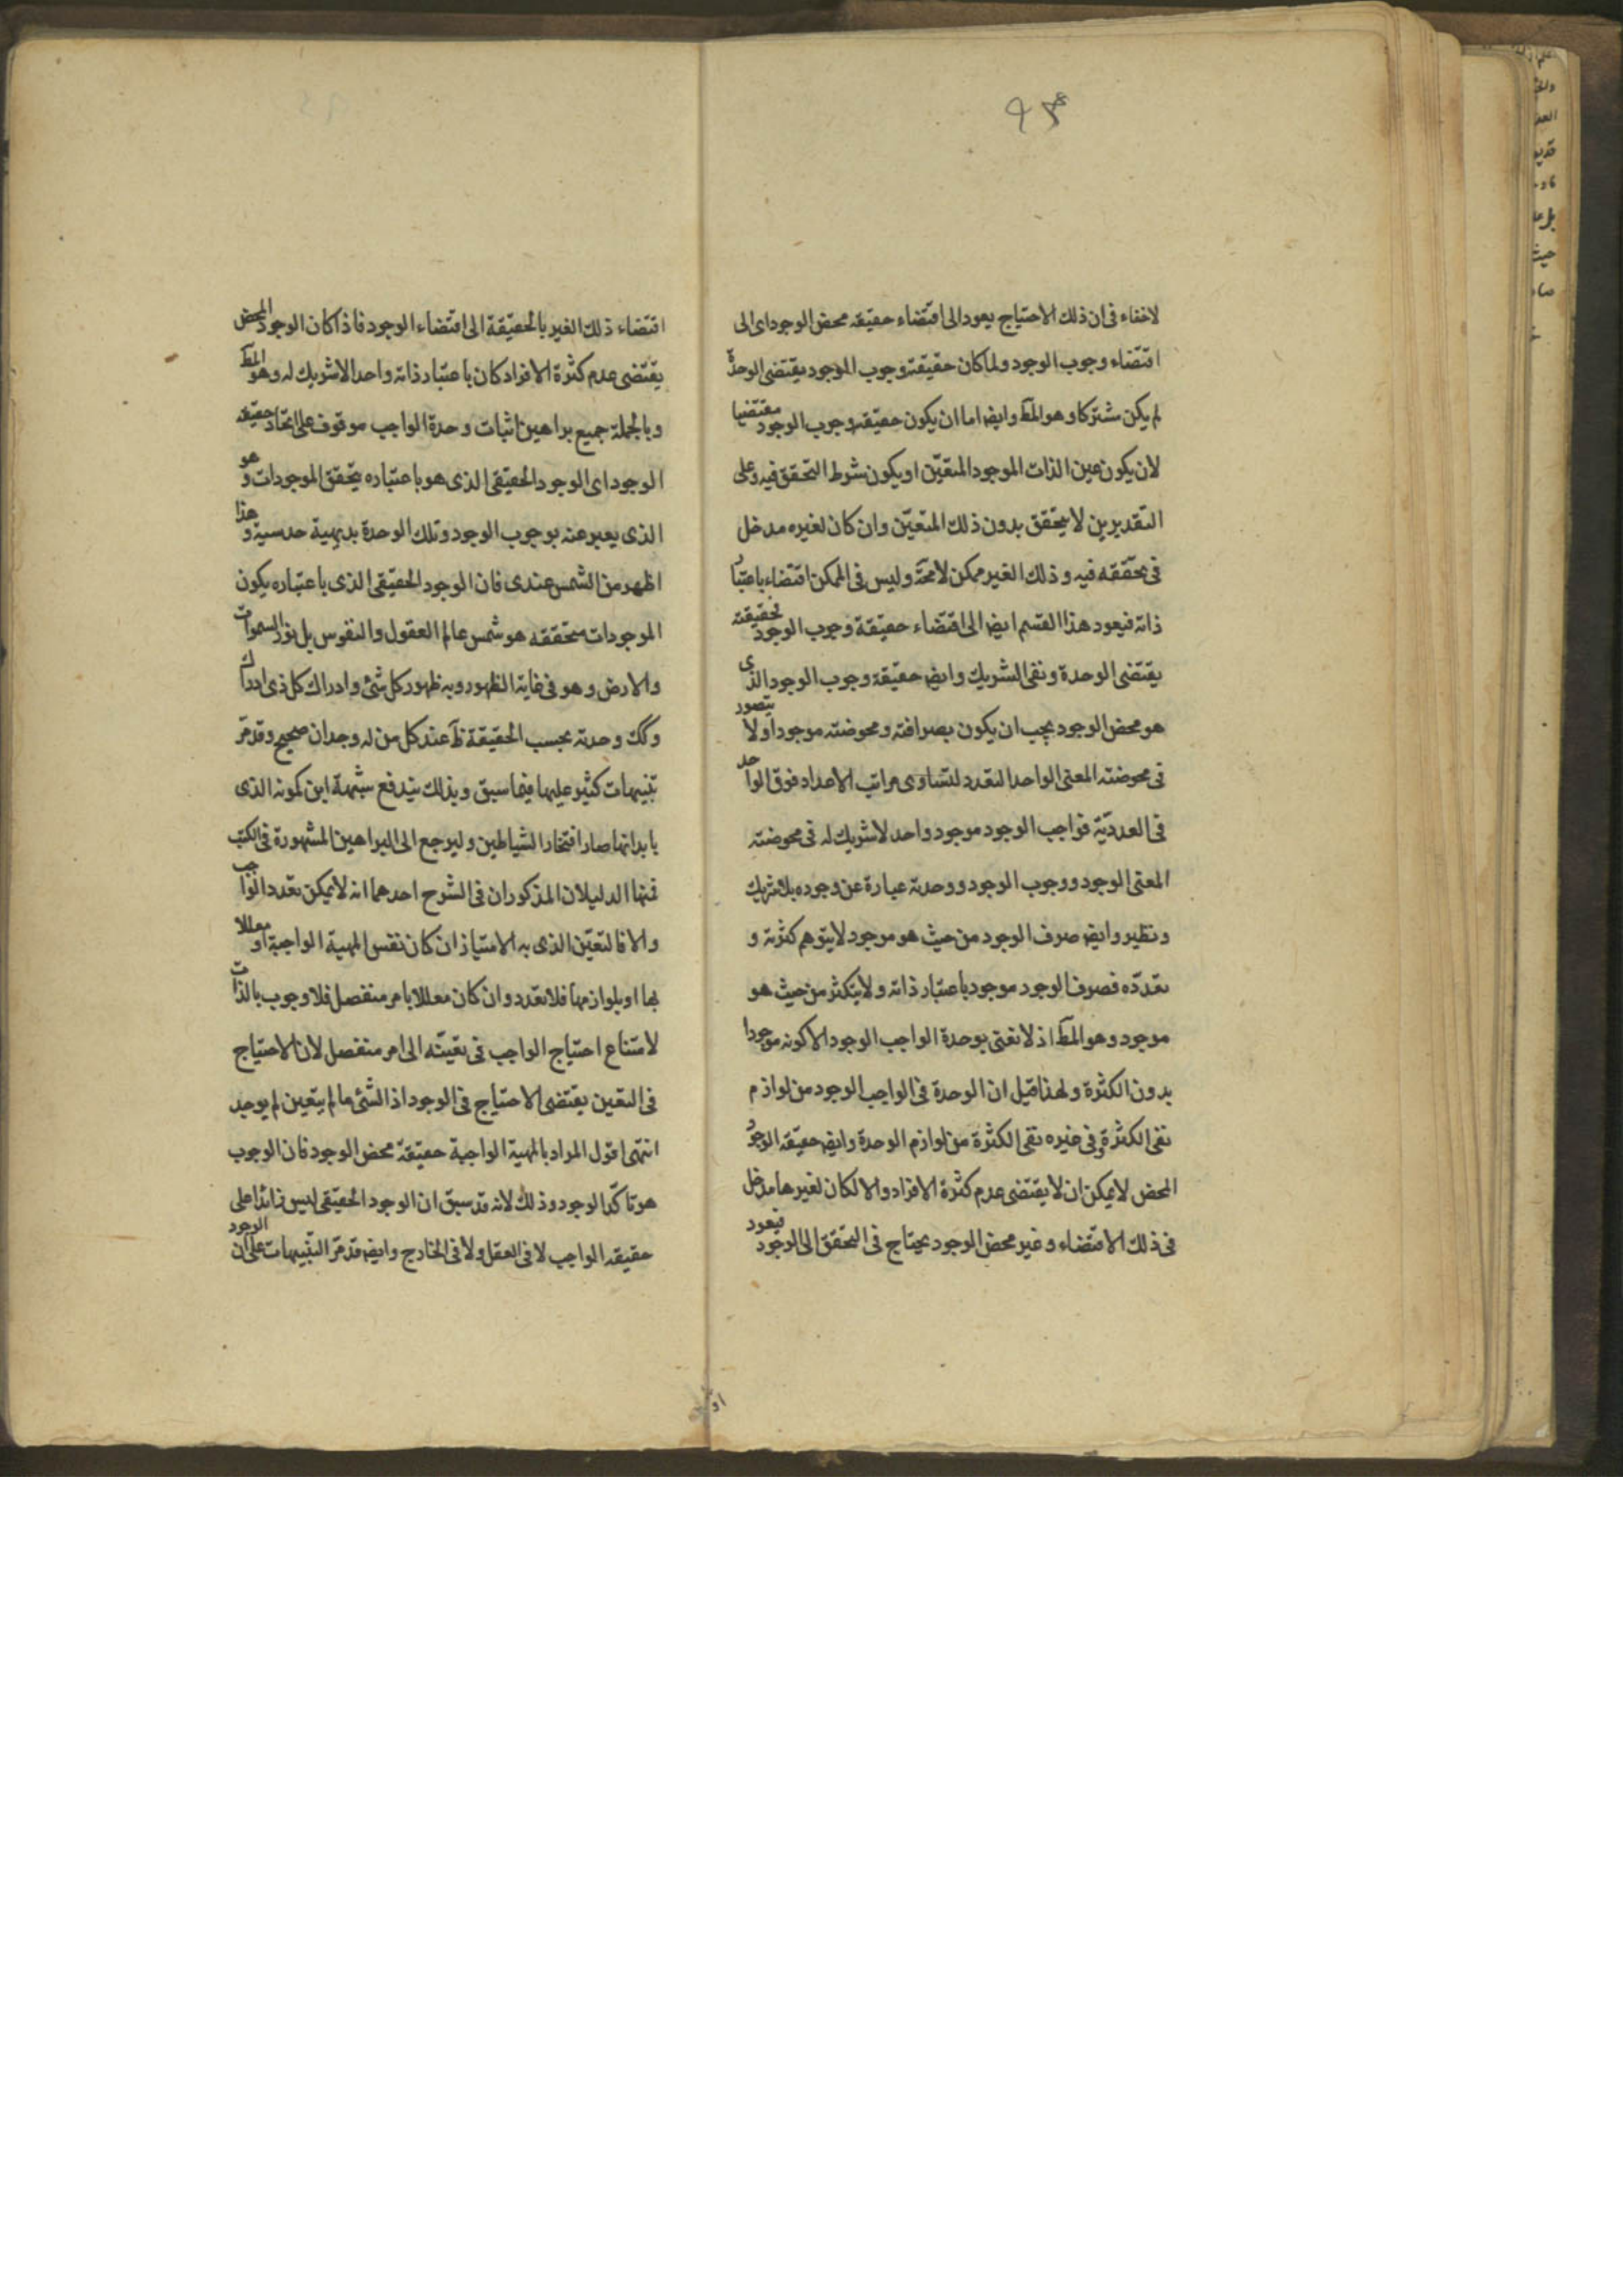 لاخفاء فی ان ذلك الاحتیاج یعود الی اقتضاء حقیقه محض الوجود ای الی
اقتضاء وجوب الوجود ولما كان حقیقة وجوب الموجود یقتضی الوحدة
لم یكن مشتركا وهو المط وایضا اما ان یكون حقیقه وجوب الوجود مقتضیا
لان یكون عین الذات الموجود المتعیّن او یكون شرط التحقق فیه وعلی
التقدیرین لا یتحقق بدون ذلك المتعیّن وان كان لغیره مدخل
فی تحققه فیه وذلك الغیر ممكن لامحة ولیس فی الممكن اقتضاء باعتبار
ذاته فیعود هذا القسم ایضا الی اقتضاء حقیقة وجوب الوجود لحقیقته
یقتضی الوحدة ونفی الشریك وایضا حقیقة وجوب الوجود الذی
هو محض الوجود یجب ان یكون بصرافته ومحوضته موجودا ولا یتصور
فی محوضته المعنی الواحد التعدد لتساوی مراتب الاعداد فوق الواحد
فی العددیّة فواجب الوجود موجود واحد لاشریك له فی محوضته
المعنی الوجود ووجوب الوجود ووحدته عبارة عن وجوده بلا شریك
ونظیر وایضا صرف الوجود من حیث هو موجود لایتوهم كثرته و
تعدّده فصرف الوجود موجود باعتبار ذاته ولا یتكثر من حیث هو
موجود وهو المط اذ لا نعنی بوحدة الواجب الوجود الا كونه موجودا
بدون الكثرة ولهذا قیل ان الوحدة فی الواجب الوجود من لوازم
نفی الكثرة وفی غیره نفی الكثرة من لوازم الوحدة وایضا حقیقه الوجود
المحض لا یمكن ان لا یقتضی عدم كثرة الافراد والا لكان لغیرها مدخل
فی ذلك الاقتضاء وغیر محض الوجود یحتاج فی التحقق الی الوجود فیعود
اقتضاء ذلك الغیر بالحقیقة الی اقتضاء الوجود فاذا كان الوجود المحض
یقتضی عدم كثرة الافراد كان باعتبار ذاته واحدا لاشریك له وهو المط
وبالجملة جمیع براهین اثبات وحدة الواجب موقوف علی اتحاد حقیقه
الوجود ای الوجود الحقیقی الذی هو باعتباره یتحقق الموجودات و هو
الذی یعبر عنه بوجوب الوجود وتلك الوحدة بدیهیة حدسیة و هذا
اظهر من الشمس عندی فان الوجود الحقیقی الذی باعتباره یكون
الموجودات متحققه هو شمس عالم العقول والنفوس بل نور السموات
والارض وهو فی غایة الظهور وبه ظهور كل شئ وادراك كل ذی ادراك
وكك وحدته بحسب الحقیقة ظ عند كل من له وجدان صحیح وقد مّر
تنبیهات كثیر علیها فیما سبق وبذلك یندفع شبهة ابن كمونه الذی
بابدائها صار افتخار الشیاطین ولیرجع الی البراهین المشهورة فی الكتب
فمنها الدلیلان المذكوران فی الشرح احدهما انه لا یمكن تعدد الواجب
والا فالتعیّن الذی به الامتیاز ان كان نفس المهیة الواجبة او معللا
بها او بلوازمها فلا تعدد وان كان معللا بامر منفصل فلا وجوب بالذات
لامتناع احتیاج الواجب فی تعیّنه الی امر منفصل لان الاحتیاج
فی التعین یقتضی الاحتیاج فی الوجود اذ الشئ ما لم یتعین لم یوجد
انتهی اقول المراد بالمهیة الواجبة حقیقة محض الوجود فان الوجوب
هو تاكّد الوجود وذلك لانه قد سبق ان الوجود الحقیقی لیس زائدا علی
حقیقه الواجب لا فی العقل ولا فی الخارج وایضا قد مّر التنبیهات علی ان الوجود